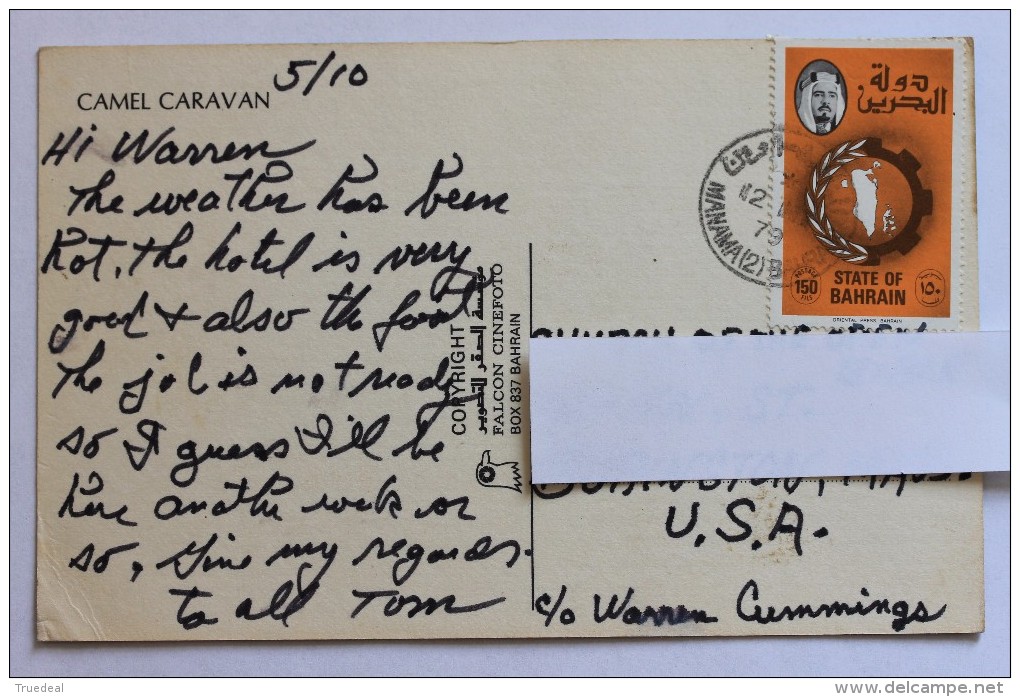 CAMEL CARAVAN
5/10
Hi Warren
The weather has been
hot, the hotel is very
good & also the food
the job is not ready
so I guess I'll be
here another week or
so, Give my regards
to all Tom
COPYRIGHT
مؤسسة الصقر للتصوير
FALCON CINEFOTO
BOX 837 BAHRAIN
دولة
البحرين
MANAMA(2)
12
79
POSTAGE
150
FILS
STATE OF
BAHRAIN
١٥٠
ORIENTAL PRESS BAHRAIN
U.S.A.
c/o Warren Cummings
Truedeal
delcampe.net